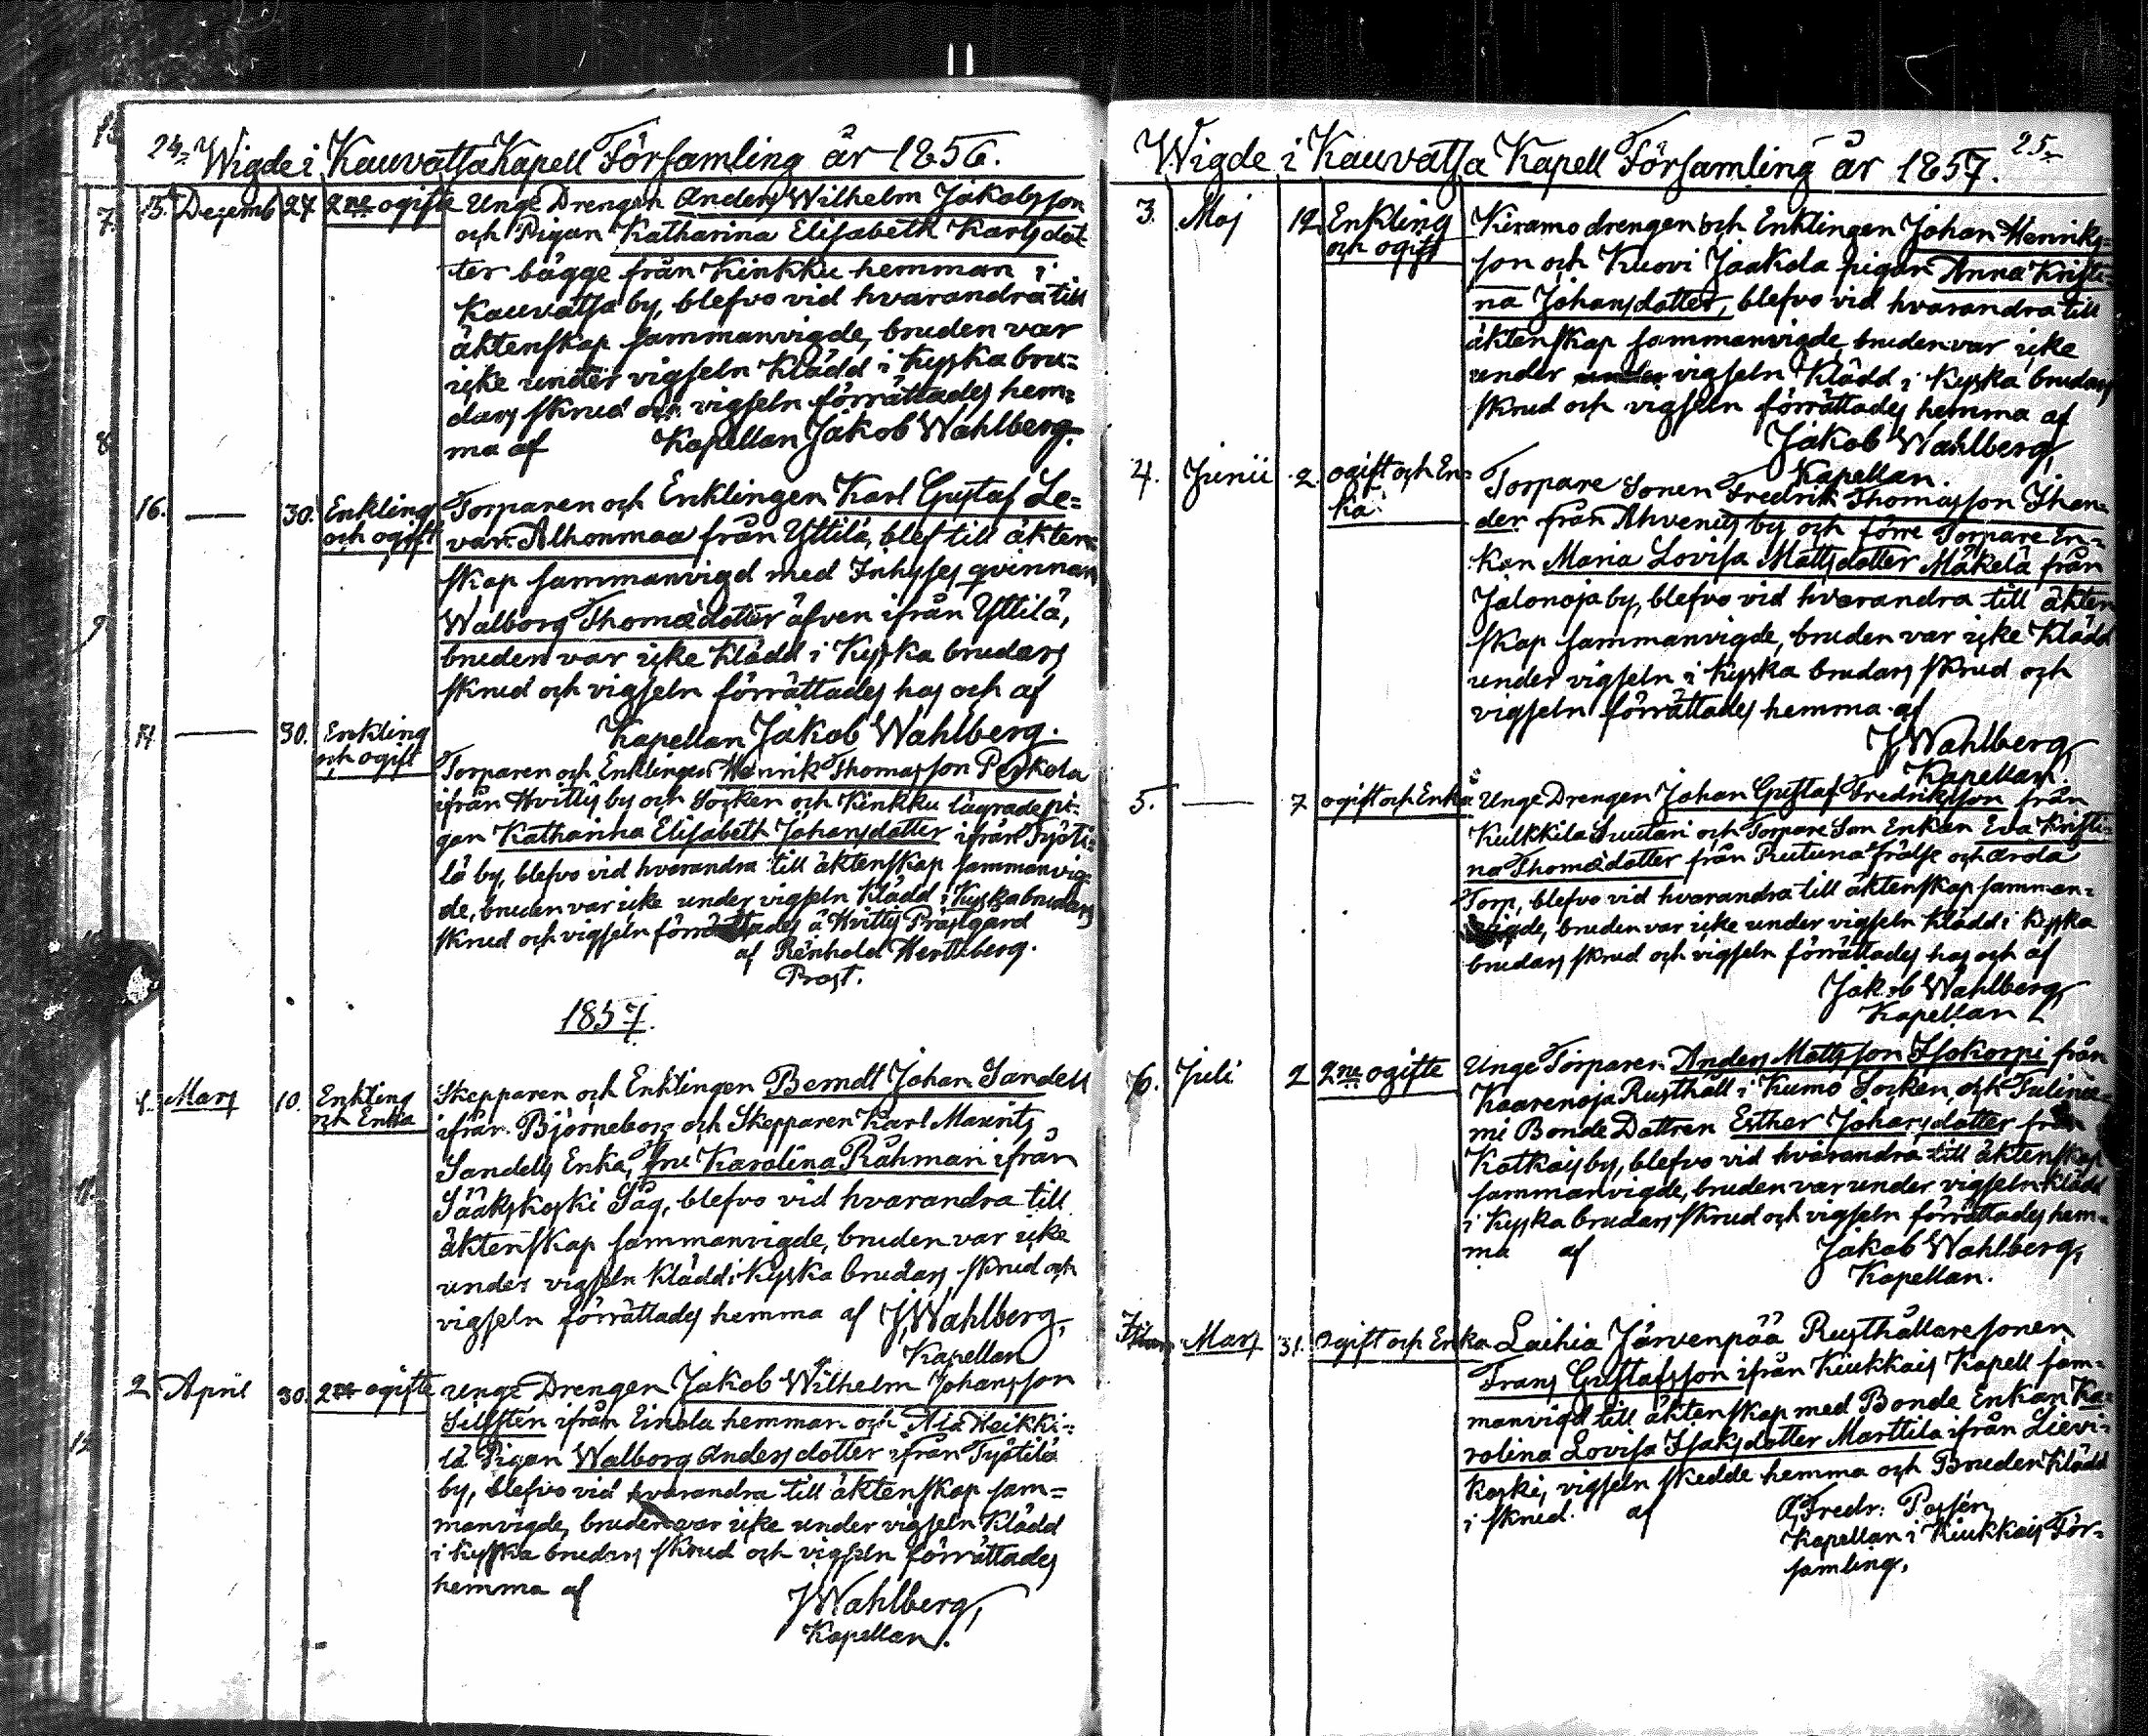 24. Wigde i Kauvatsa Kapell Församling år 1856.
15. Dezemb 27 2ne ogifte Unge Drengen Anders Wilhelm Jakobsson
och Pigan Katharina Elisabeth Karlsdot-
ter bägge från Kinkku hemman i
Kauvatsa by, blefvo vid hvarandra till
äktenskap sammanvigde, bruden var
icke under vigseln Klädd i kyska bru=
dars skrud och vigseln förrättades hem=
ma af Kapellan Jakob Wahlberg.
16. — 30. Enkling och ogift Torparen och Enklingen Karl Gustaf Le=
van Alhonmaa från Yttilä, blef till äkten=
skap sammanvigd med Inhyses qvinnan
Walborg Thomædotter äfven ifrån Yttilä,
bruden var icke Klädd i Kyska brudars
skrud och vigseln förrättades hos och af
Kapellan Jakob Wahlberg.
17 — 30. Enkling och ogift
Torparen och Enklingen Henrik Thomasson Peskola
ifrån Hvittis by och Socken och Kinkku lägrade pi=
gan Katharina Elisabeth Johansdotter ifrån Työti=
lä by, blefvo vid hvarandra till äktenskap sammanvig=
de, bruden var icke under vigseln Klädd i Kyska brudars
skrud och vigseln förrättades å Hvittis Prästgård
af Renhold Hertzberg.
Prost.
1857.
1. Mars 10. Enkling och Enka Skepparen och Enklingen Berndt Johan Sandell
ifrån Björneborg och Skepparen Karl Maurits
Sandells Enka, fru Karolina Råhman ifrån
Sääkskoski Såg, blefvo vid hvarandra till
äktenskap sammanvigde, bruden var icke
under vigseln Klädd i Kyska brudars skrud och
vigseln förrättades hemma af J. Wahlberg,
Kapellan
2. April 30. 2ne ogifte Unge Drengen Jakob Wilhelm Johansson
Sillsten ifrån Einola hemman och Ala Heikki=
lä Pigan Walborg Andersdotter ifrån Työtilä
by, blefvo vid hvarandra till äktenskap sam=
manvigde, bruden var icke under vigseln Klädd
i kyska brudars skrud och vigseln förrättades
hemma af J Wahlberg,
Kapellan.
Wigde i Kauvatsa Kapell Församling år 1857. 25.
3. Maj 12. Enkling och ogift Kiramo drengen och Enklingen Johan Henriks=
son och Kuovi Jaakola pigan Anna Kristi=
na Johansdotter, blefvo vid hvarandra till
äktenskap sammanvigde, bruden var icke
under vigseln Klädd i Kyska brudars
skrud och vigseln förrättades hemma af
Jakob Wahlberg,
Kapellan.
4. Junii 2. ogift och En=
ka. Torpare Sonen Fredrik Thomasson Ihan=
der från Ahvenus by och förre Torpare En=
kan Maria Lovisa Mattsdotter Mäkelä från
Jalonoja by, blefvo vid hvarandra till äkten
skap sammanvigde, bruden var icke Klädd
under vigseln i kyska brudars skrud och
vigseln förrättades hemma af
J, Wahlberg,
Kapellan.
5. — 7 ogift och Enka Unge Drengen Johan Gustaf Fredriksson från
Kulkkila Suutari och Torpare Son Enkan Eva Kristi=
na Thomædotter från Puttuna frälse och Arola
Torp, blefvo vid hvarandra till äktenskap samman=
vigde, bruden var icke under vigseln Klädd i kyska
brudars skrud och vigseln förrättades hos och af
Jakob Wahlberg,
Kapellan
6. Juli 2 2ne ogifte Unge Torparen Anders Mattsson Isokorpi från
Kaarenoja Rusthåll i Kumo Socken och Tulinie=
mi Bonde Dottren Esther Johansdotter från
Katkais by, blefvo vid hvarandra till äktenskap
sammanvigde, bruden var under vigseln klädd
i Kyska brudars skrud och vigseln förrättades hem=
ma af Jakob Wahlberg,
Kapellan.
7. Mars 31. Ogift och Enka Laihia Järvenpää Rusthållaresonen
Frans Gustafsson ifrån Kiukkais Kapell sam=
manvigd till äktenskap med Bonde Enkan Ka=
rolina Lovisa Isaksdotter Marttila ifrån Lievi=
koski, vigseln skedde hemma och Bruden Klädd
i skrud. af A. Fredr: Passén,
Kapellan i Kiukkais För=
samling.